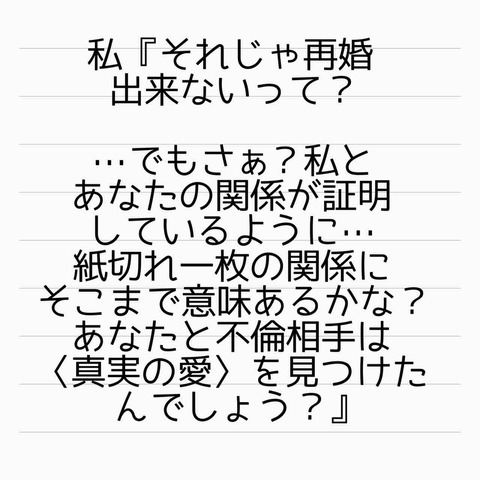 私『それじゃ再婚
出来ないって？
…でもさぁ？私と
あなたの関係が証明
しているように…
紙切れ一枚の関係に
そこまで意味あるかな？
あなたと不倫相手は
〈真実の愛〉を見つけた
んでしょう？』